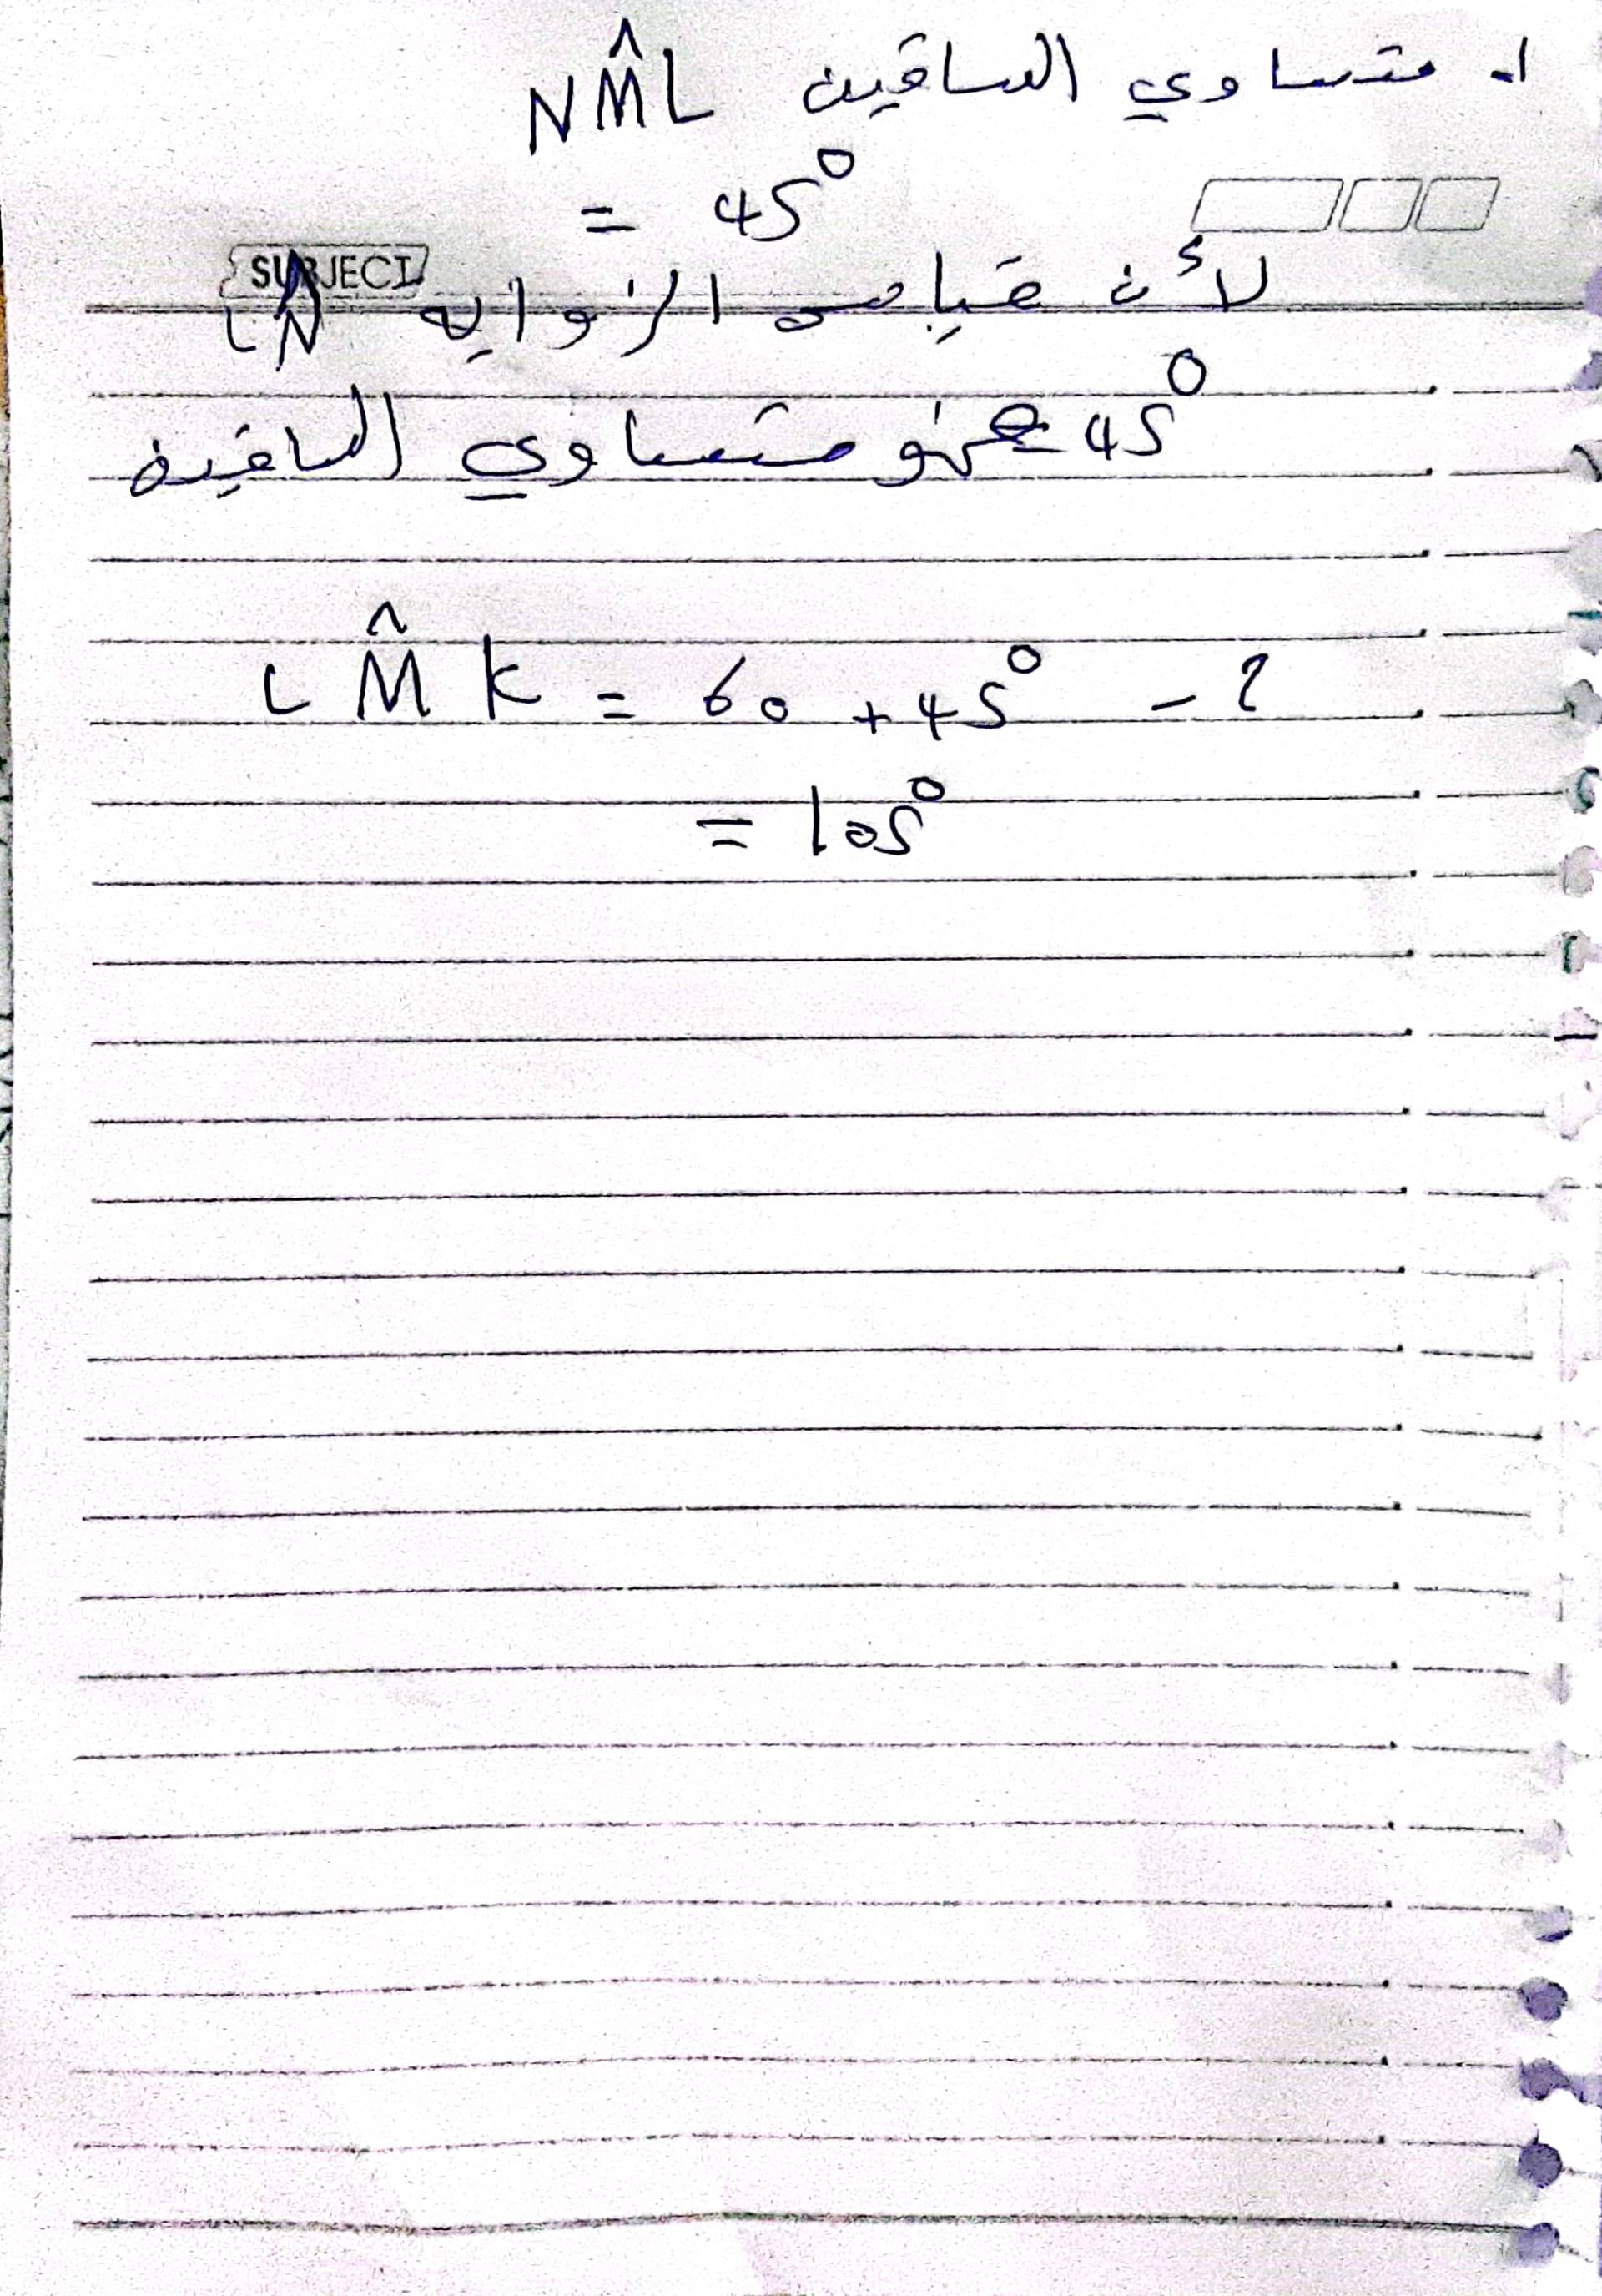 ١- متساوي الساقين NM̂L
= 45°
SUBJECT
لأن قياس الزوايه LN̂
45° فهو متساوي الساقين
LM̂K = 60 + 45° -٢
= 105°